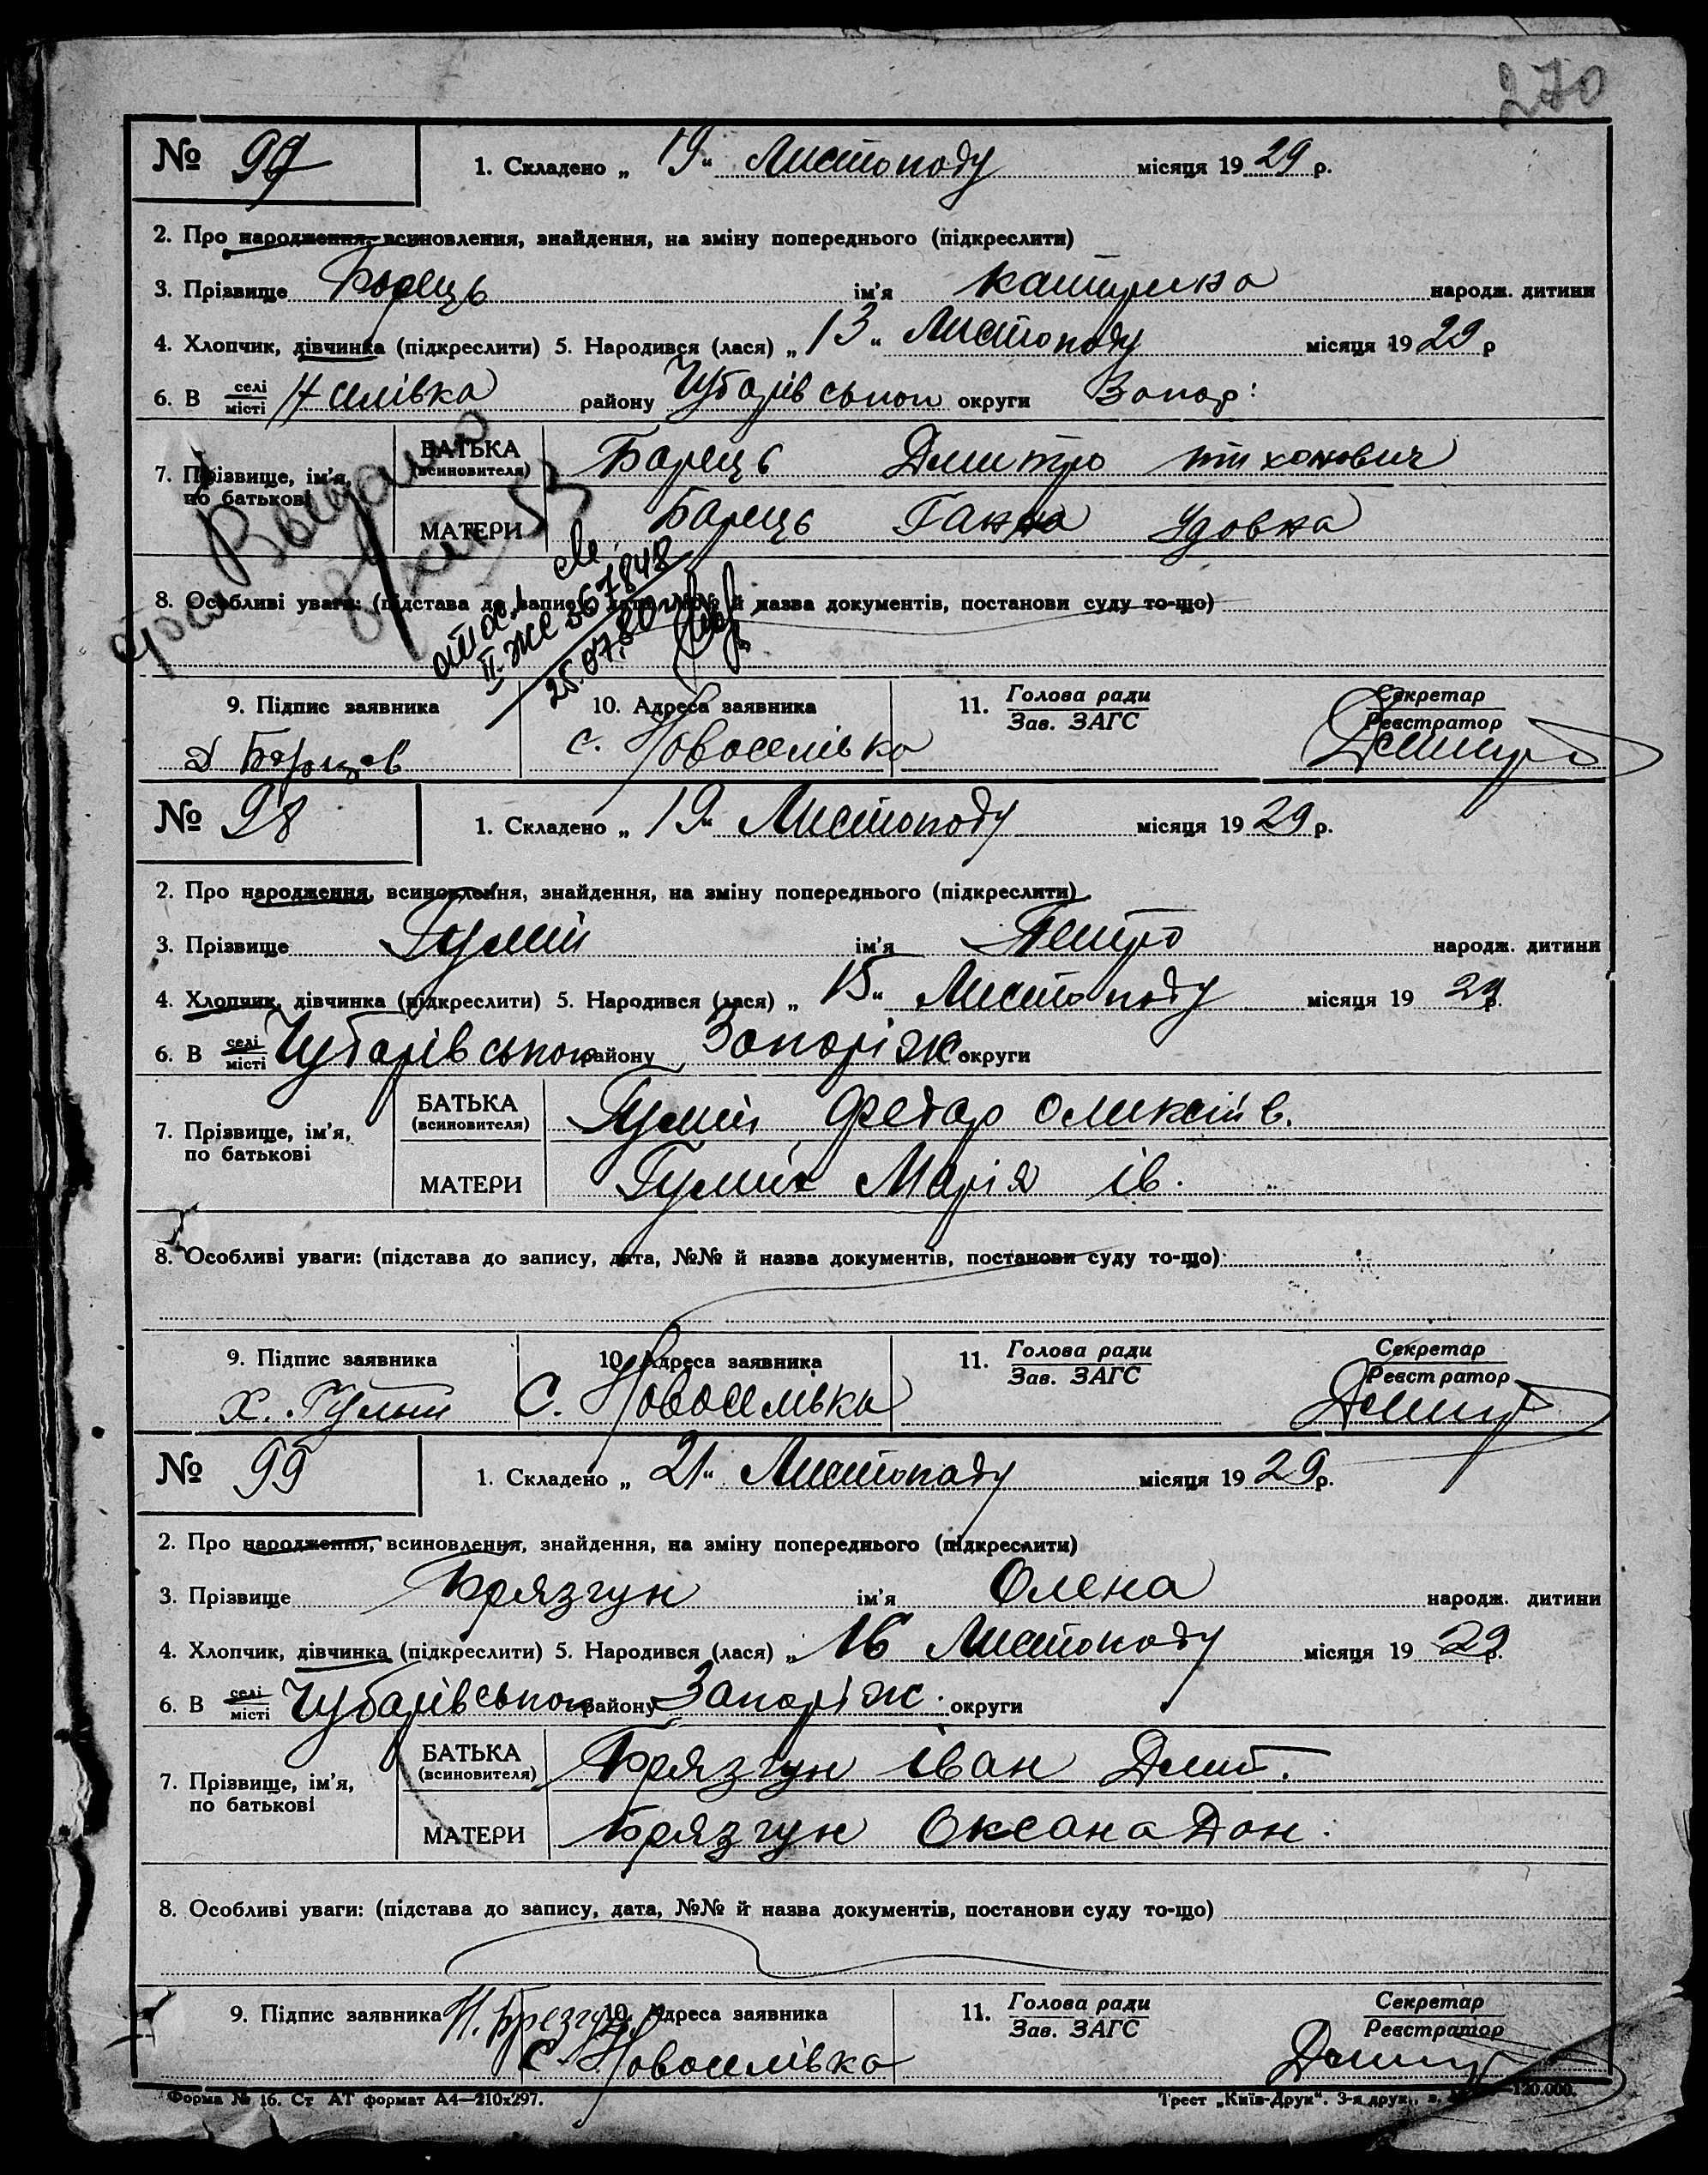 270
№ 97
1. Складено „ 19 “ Листопаду місяця 1929 р.
2. Про народження, всиновлення, знайдення, на зміну попереднього (підкреслити)
3. Прізвище Борець ім'я Катирина народж. дитини
4. Хлопчик, дівчинка (підкреслити) 5. Народився (лася) „ 13 “ Листопаду місяця 1929 р
6. В селі/місті Н селівка району Чубарівськой округи Запор:
7. Прізвище, ім'я, по батькові
БАТЬКА (всиновителя) Барець Дмитро
МАТЕРИ Барець Ганна Удовна
8. Особливі уваги: (підстава до запису, дата, №№ й назва документів, постанови суду то-що)
Выдано
II-ЖС 567848
25.07.80
9. Підпис заявника
10. Адреса заявника
11. Голова ради
Зав. ЗАГС
Секретар
Реєстратор
с. Новоселівка
№ 98
1. Складено „ 19 “ Листопаду місяця 1929 р.
2. Про народження, всиновлення, знайдення, на зміну попереднього (підкреслити)
3. Прізвище Гулий ім'я Петро народж. дитини
4. Хлопчик, дівчинка (підкреслити) 5. Народився (лася) „ 15 “ Листопаду місяця 1929 р.
6. В селі/місті Чубарівськой району Запоріж округи
7. Прізвище, ім'я, по батькові
БАТЬКА (всиновителя) Гулий Федар Оликсіів.
МАТЕРИ Гулий Марія ів.
8. Особливі уваги: (підстава до запису, дата, №№ й назва документів, постанови суду то-що)
9. Підпис заявника
10. Адреса заявника
11. Голова ради
Зав. ЗАГС
Секретар
Реєстратор
Х. Гулий с. Новоселівка
№ 99
1. Складено „ 21 “ Листопаду місяця 1929 р.
2. Про народження, всиновлення, знайдення, на зміну попереднього (підкреслити)
3. Прізвище Брязгун ім'я Олена народж. дитини
4. Хлопчик, дівчинка (підкреслити) 5. Народився (лася) „ 16 Листопаду місяця 1929 р.
6. В селі/місті Чубарівськой району Запоріж. округи
7. Прізвище, ім'я, по батькові
БАТЬКА (всиновителя) Брязгун Іван Дмит.
МАТЕРИ Брязгун Оксана Дон.
8. Особливі уваги: (підстава до запису, дата, №№ й назва документів, постанови суду то-що)
9. Підпис заявника И. Брезгун
10. Адреса заявника
11. Голова ради
Зав. ЗАГС
Секретар
Реєстратор
с. Новоселівка
Форма № 16. Ст АТ формат А4—210х297.
Трест „Київ-Друк“. 3-я друк., з. 120.000.